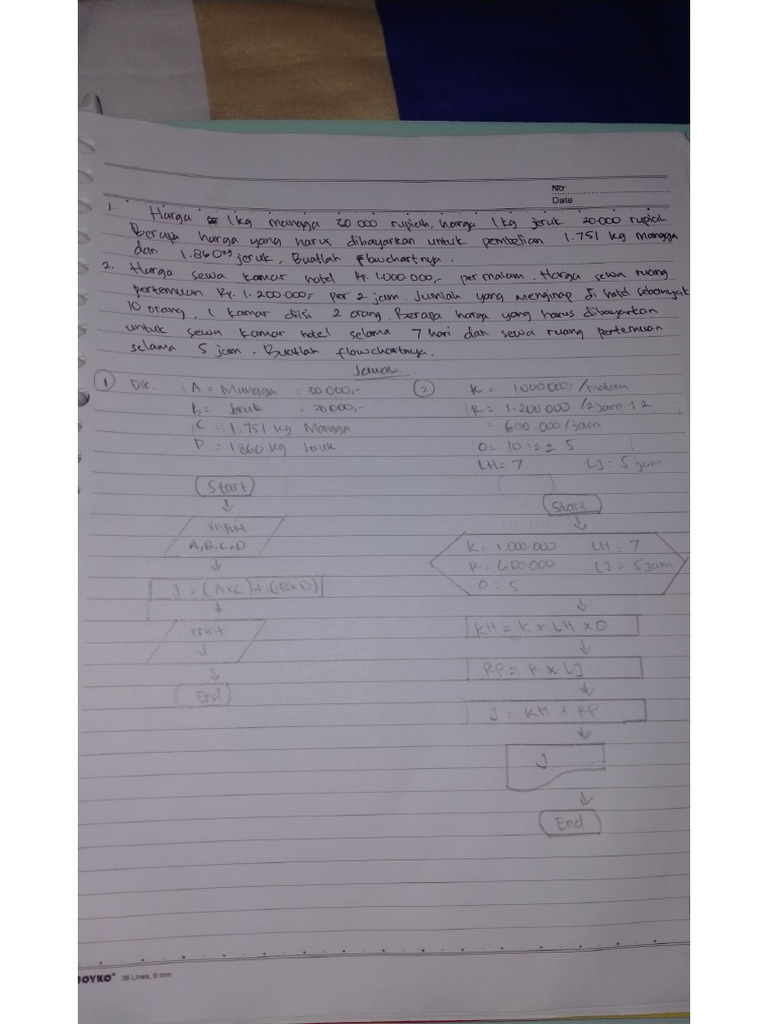 No
Date
1. Harga 1 kg mangga 30 000 rupiah, harga 1 kg jeruk 20.000 rupiah
Berapa harga yang harus dibayarkan untuk pembelian 1.751 kg Mangga
dan 1.860 kg jeruk, Buatlah flowchartnya.
2. Harga sewa kamar hotel Rp. 1.000.000,- per malam. Harga sewa ruang
pertemuan Rp. 1.200.000,- per 2 jam. Jumlah yang menginap di hotel sebanyak
10 orang, 1 kamar diisi 2 orang Berapa harga yang harus dibayarkan
untuk sewa kamar hotel selama 7 hari dan sewa ruang pertemuan
selama 5 jam. Buatlah flowchartnya.
Jawab
1 Dik. A = Mangga : 30 000,-
B = Jeruk : 20000,-
C = 1.751 kg Mangga
D = 1860 kg Jeruk
Start
input
A, B, C, D
J = (A x C) + (B x D)
print
J
End
2 K = 1000000,-/malam
R = 1.200.000 /2jam : 2
= 600.000/jam
O = 10 : 2 = 5
LH = 7 LJ = 5 jam
Start
K = 1.000.000 LH = 7
R = 600 000 LJ = 5 jam
O = 5
KH = K x LH x O
RP = R x LJ
J = KH + RP
J
End
JOYKO® 36 Lines, 6 mm